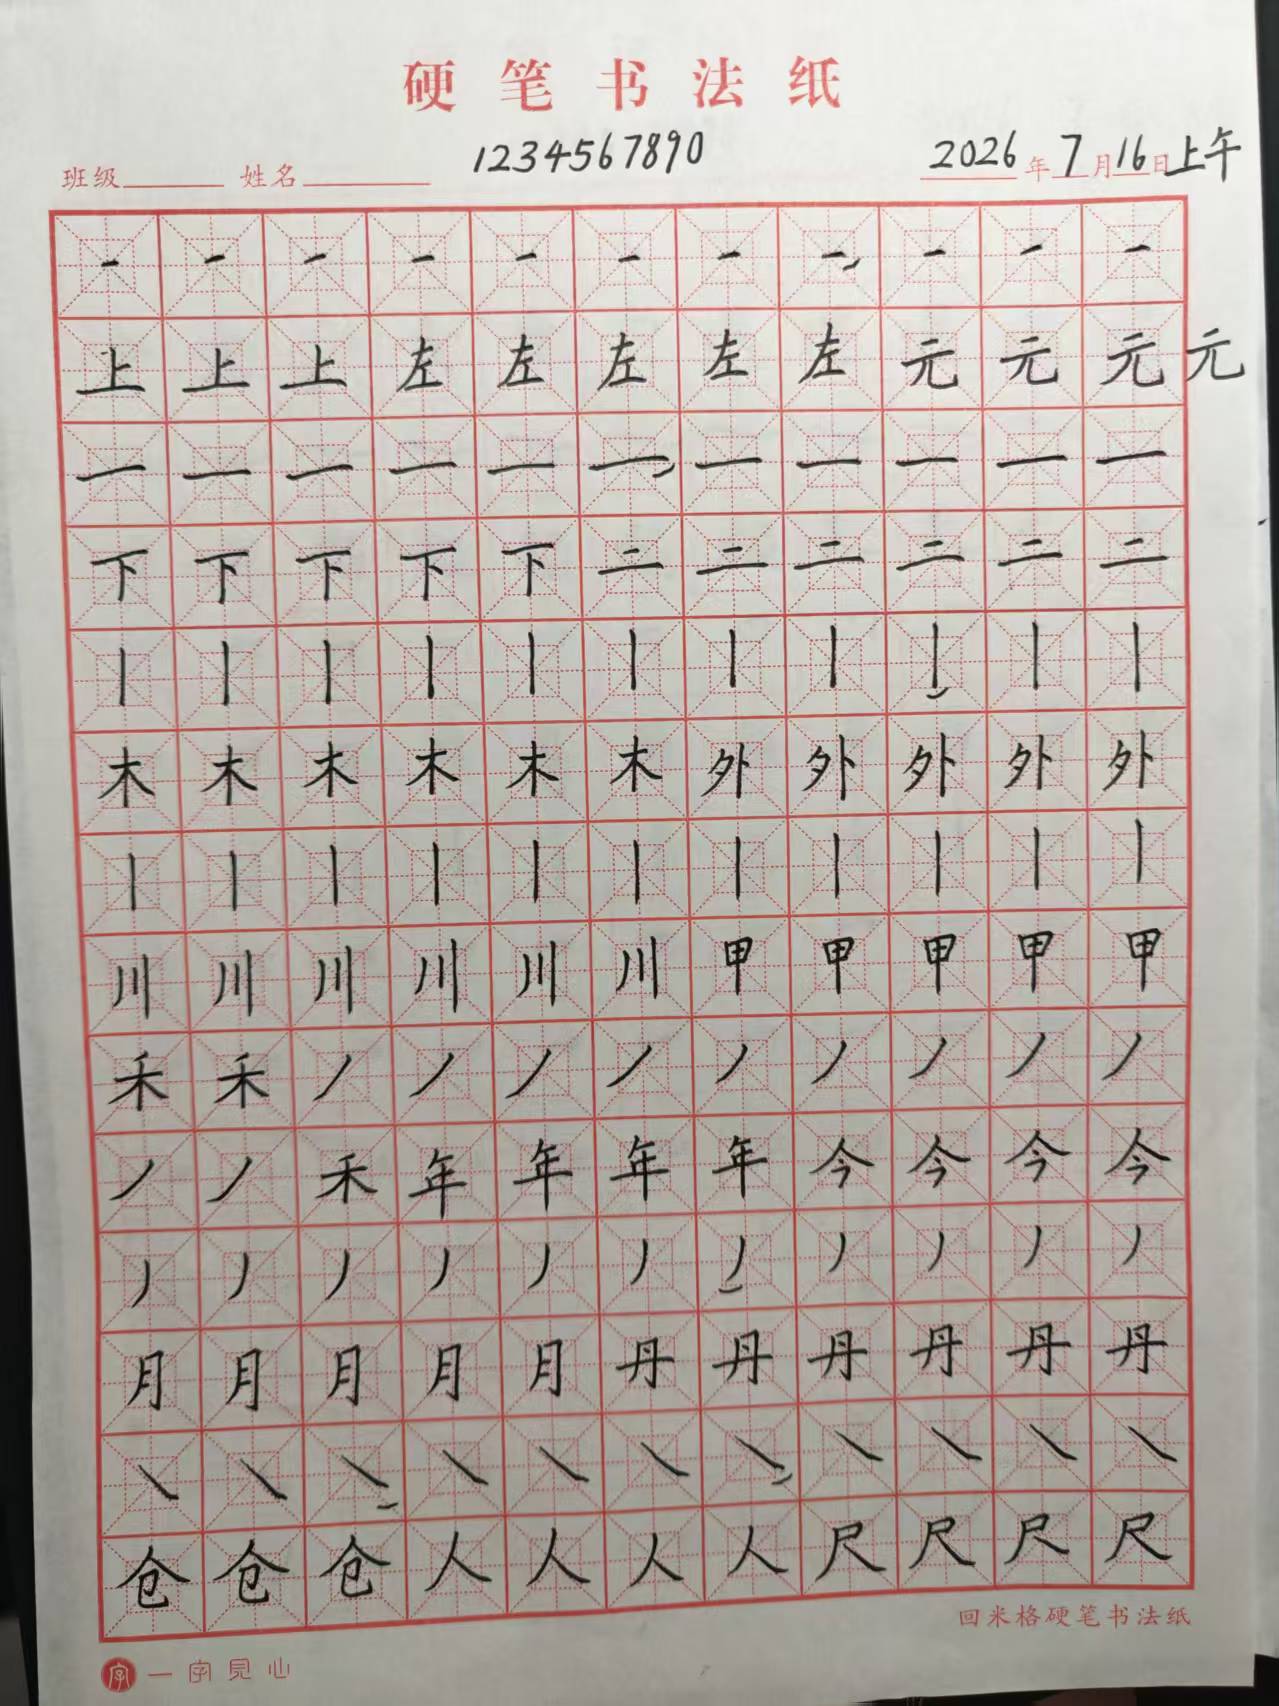 硬笔书法纸
班级 姓名 1234567890 2026年7月16日上午
一一一一一一一一一一一
上上上左左左左左元元元元
一一一一一一一一一一一
下下下下下二二二二二二
丨丨丨丨丨丨丨丨丨丨丨
木木木木木木外外外外外
丨丨丨丨丨丨丨丨丨丨丨
川川川川川川甲甲甲甲甲
禾禾丿丿丿丿丿丿丿丿丿
丿丿禾年年年年今今今今
丿丿丿丿丿丿丿丿丿丿丿
月月月月月丹丹丹丹丹丹
㇏㇏㇏㇏㇏㇏㇏㇏㇏㇏㇏
仓仓仓人人人人尺尺尺尺
回米格硬笔书法纸
字 一字见心